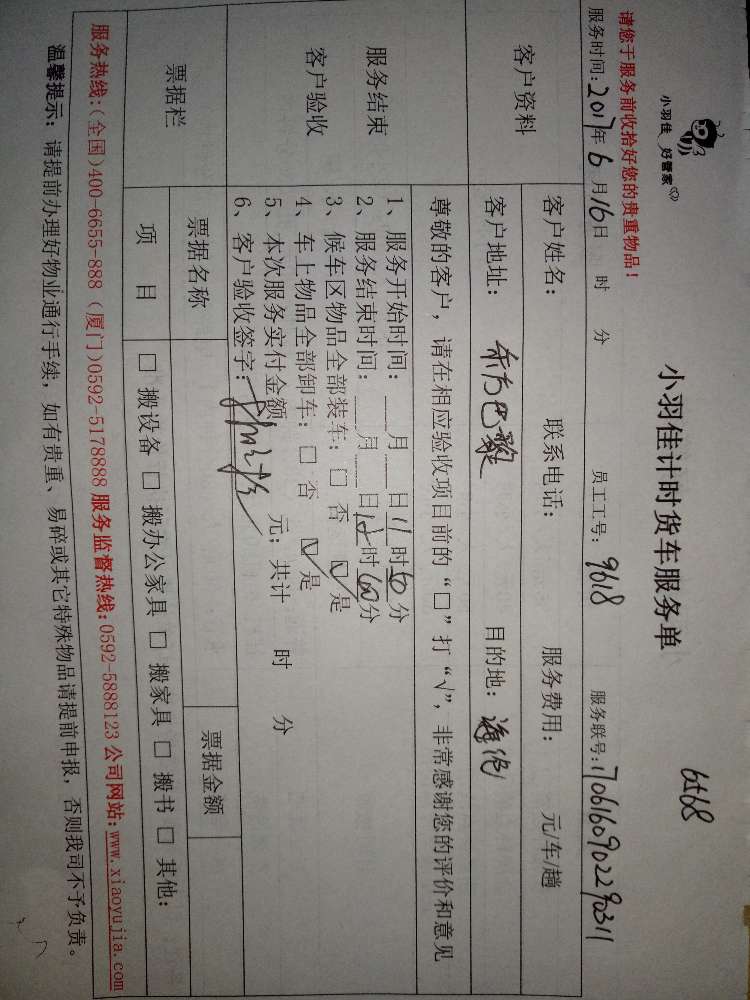 小羽佳 好管家
小羽佳计时货车服务单
6568
请您于服务前收拾好您的贵重物品！
服务时间：2017年6月16日 时 分 员工工号：9618 服务联号：170616090229031 1
客户资料
客户姓名： 联系电话： 服务费用： 元/车/趟
客户地址： 东方巴黎 目的地：
服务结束
客户验收
尊敬的客户，请在相应验收项目前的“□”打“√”，非常感谢您的评价和意见
1、服务开始时间：___月___日11时00分
2、服务结束时间：___月___日12时00分
3、候车区物品全部装车：□ 否 ☑ 是
4、车上物品全部卸车：□ 否 ☑ 是
5、本次服务实付金额 元；共计 时 分
6、客户验收签字：
票据栏
票据名称 票据金额
项 目 □ 搬设备 □ 搬办公家具 □ 搬家具 □ 搬书 □ 其他：
服务热线：(全国)400-6655-888 (厦门)0592-5178888 服务监督热线：0592-5888123 公司网站：www.xiaoyujia.com
温馨提示：请提前办理好物业通行手续，如有贵重、易碎或其它特殊物品请提前申报，否则我司不予负责。